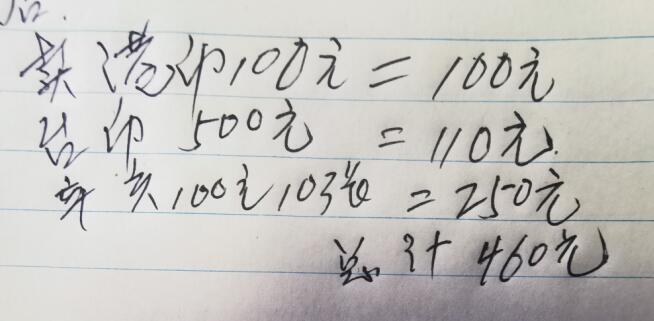 港印100元=100元
台印 500元 =110元
辛亥100元103张 =250元
总计 460元